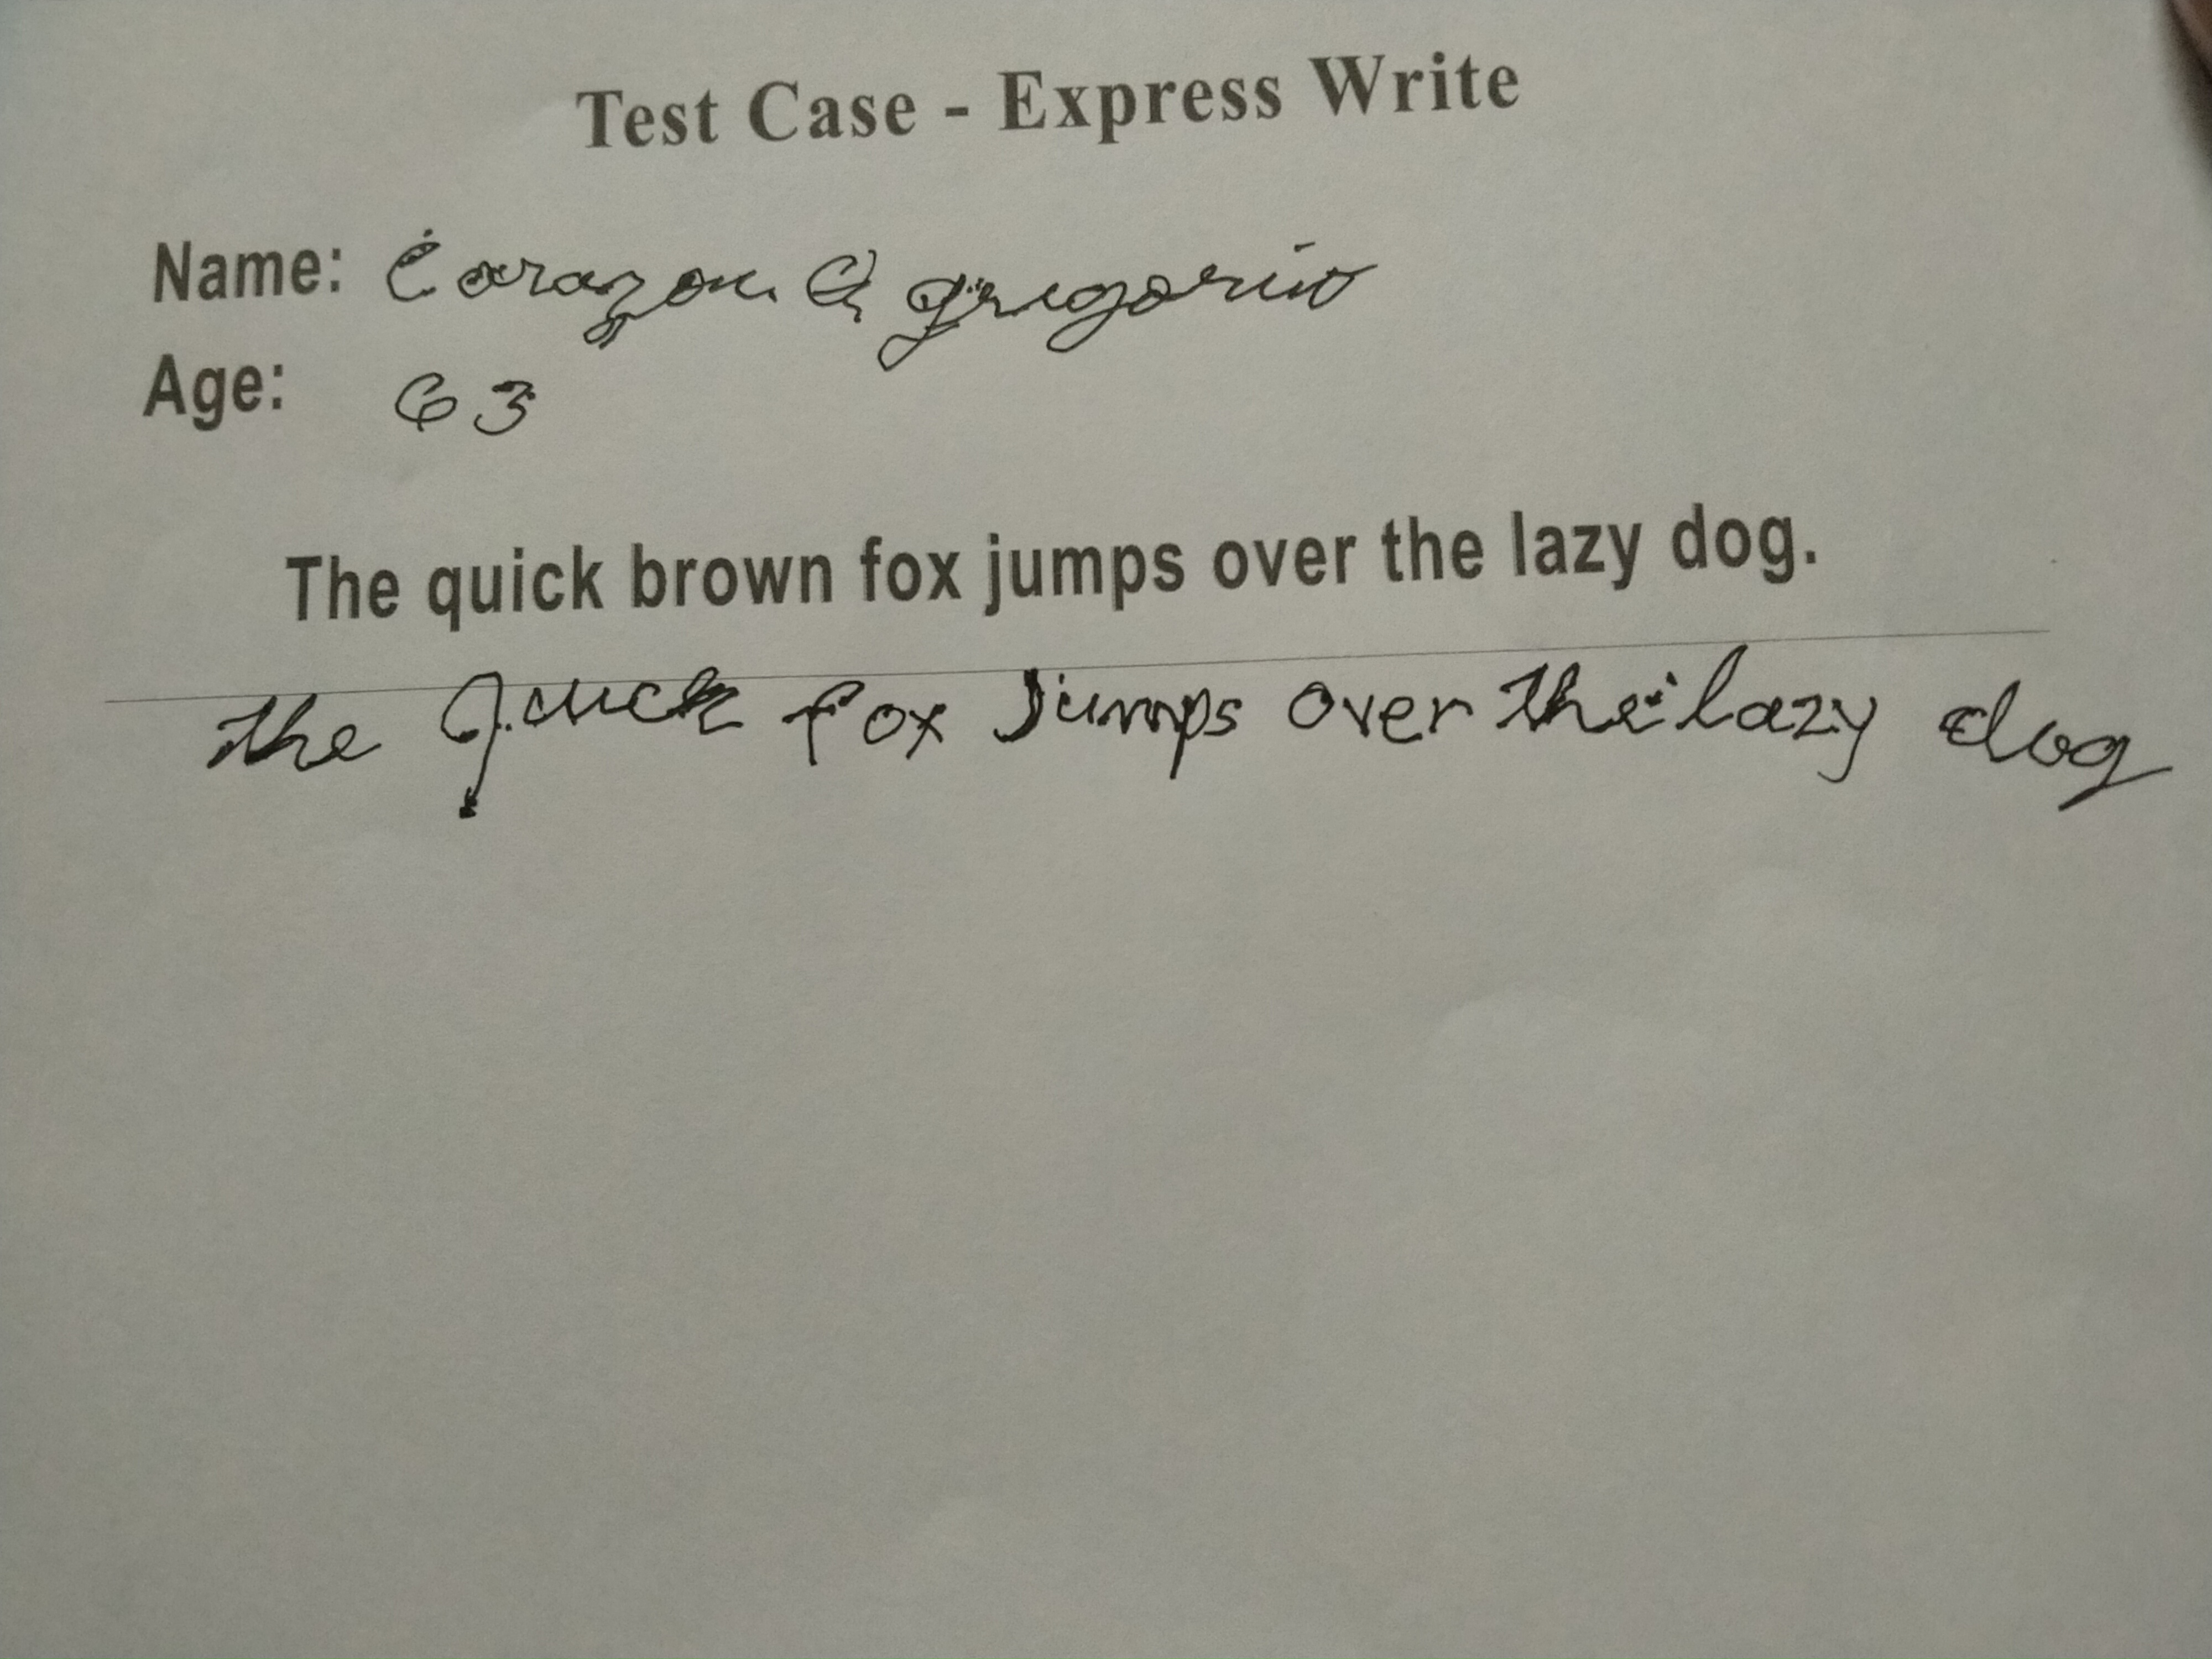 Test Case - Express Write
Name: Corazon G gregorio
Age: 63
The quick brown fox jumps over the lazy dog.
the quick fox Jumps over the lazy dog